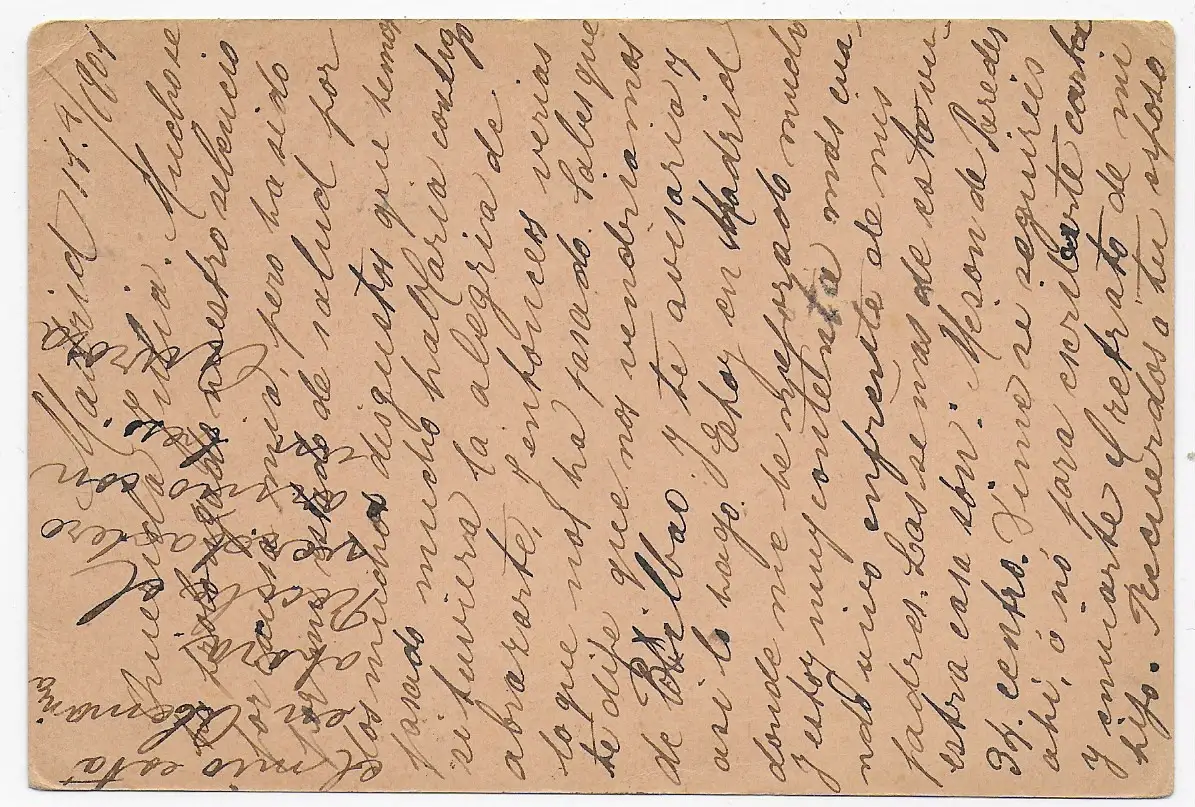 Madrid 17-4/1901
Querida Mucho se
nuestro silencio
pero ha sido
de salud y por
los muchos disgustos que hemos
pasado mucho hablaria contigo
si tuviera la alegria de
abrazarte, y entonces verias
lo que nos ha pasado. Sabes que
te dije que nos vendriamos
de Bilbao y te avisaria y
asi lo hago. Estoy en Madrid
donde me he mejorado mucho
y estoy muy contenta mas cua-
ndo vivo enfrente de mis
padres. Las señas de esta vu-
estra casa son: Meson de Paredes
37. centro. Dime se seguireis
ahi, ó nó para escribirte carta
y enviarte el retrato de mi
hijo. Recuerdos a tu esposo
el mio esta
en
ahora